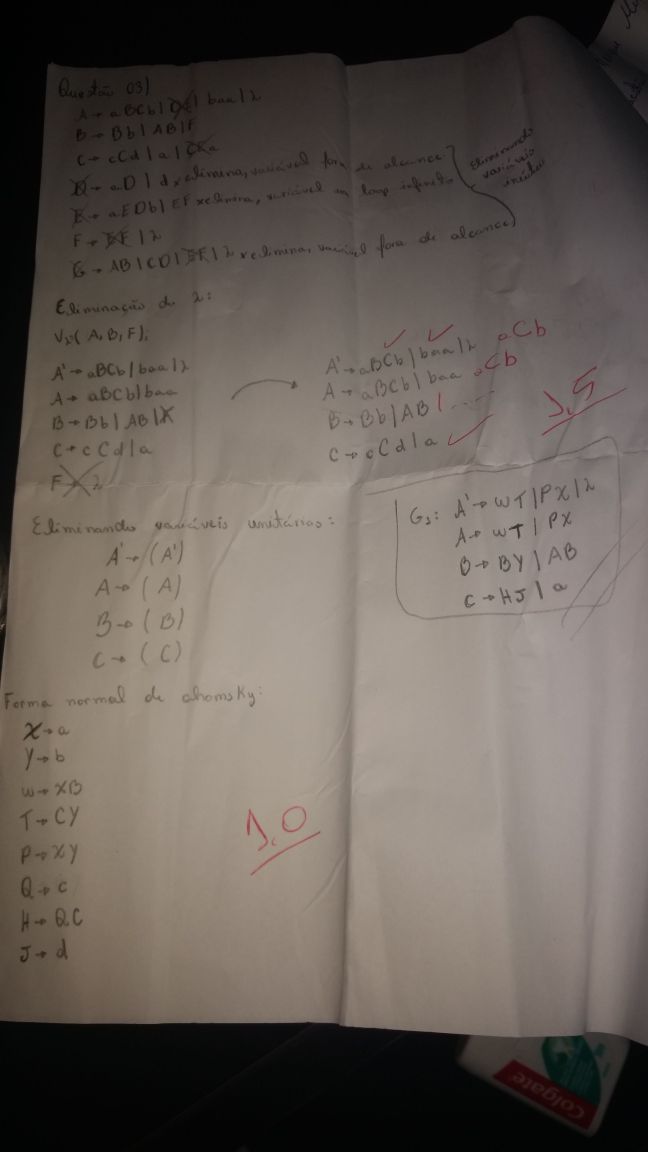 Questão 03)
A → aBCb | DE | baa | λ
B → Bb | AB | F
C → cCd | a | CEa
D → aD | d x elimina, variável fora de alcance
E → aEDb | EF x elimina, variável em loop infinito
F → EF | λ
G → AB | CD | EF | λ x elimina, variável fora de alcance
Eliminando
variáveis
inúteis
Eliminação de λ:
Vλ: (A, B, F);
A' → aBCb | baa | λ
A → aBCb | baa
B → Bb | AB | X
C → cCd | a
F → λ
A' → aBCb | baa | λ aCb
A → aBCb | baa aCb
B → Bb | AB |
C → cCd | a
1.5
Eliminando variáveis unitárias:
A' → (A')
A → (A)
B → (B)
C → (C)
G3: A' → WT | PX | λ
A → WT | PX
B → BY | AB
C → HJ | a
Forma normal de chomsky:
X → a
Y → b
W → XB
T → CY
P → XY
Q → c
H → QC
J → d
1.0
Colgate